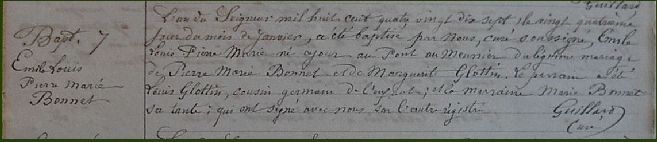 Guillard
Bapt. 7
Emile Louis
Pierre Marie
Bonnet
L'an du Seigneur mil huit cent quatre vingt dix sept, le vingt quatrième
jour du mois de Janvier, a été baptisé par Nous, curé soussigné, Emile
Louis Pierre Marie né ce jour au Pont au Meunier du légitime mariage
de Pierre Marie Bonnet et de Marguerit Glottin. Le parrain a été
Louis Glottin, cousin germain de l'enfant; et la marraine Marie Bonnet
sa tante; qui ont signé avec nous sur l'autre registre
Guillard
Curé